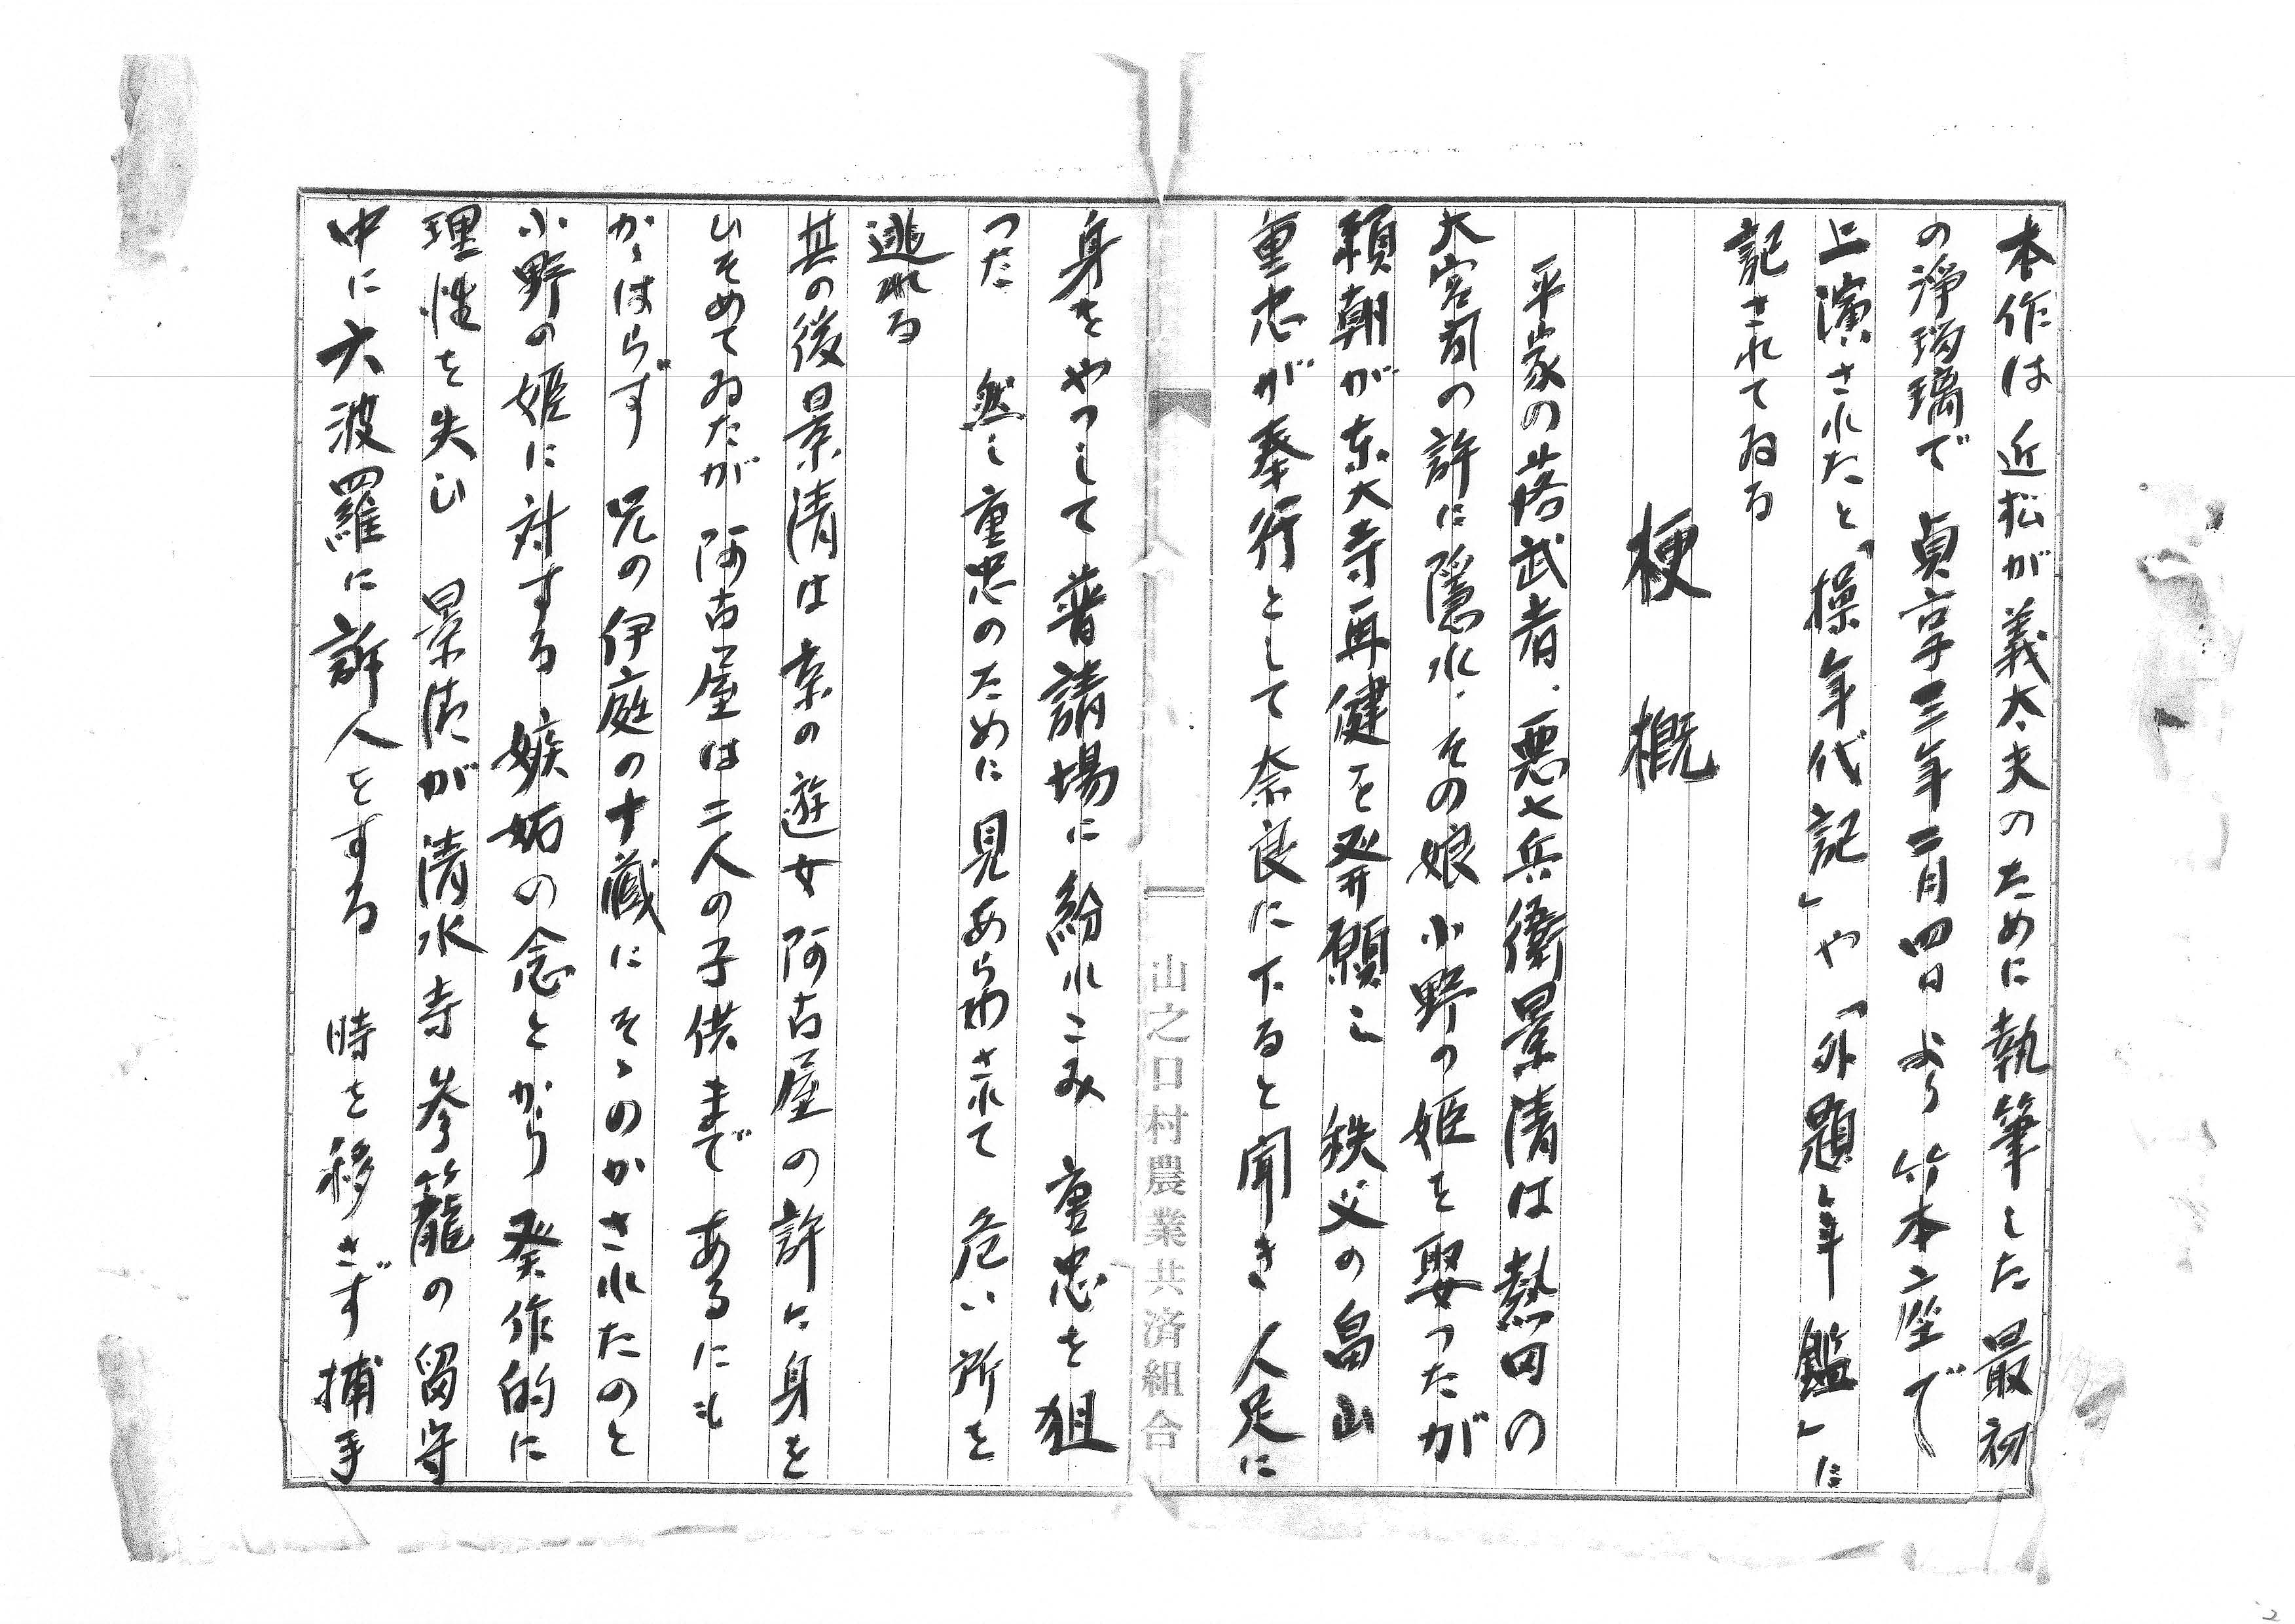 本作は近松が義太夫のために執筆した最初
の浄瑠璃で貞享三年二月四日より竹本座で
上演されたと「操年代記」や「外題年鑑」に
記されてゐる
梗概
平家の落武者、悪七兵衛景清は熱田の
大宮司の許に隠れ、その娘小野の姫を娶ったが
頼朝が東大寺再健を発願し 秩父の畠山
重忠が奉行として奈良に下ると聞き人足に
山之口村農業共済組合
身をやつして普請場に紛れこみ 重忠を狙
つた 然し重忠のために見あらわされて 危い所を
逃れる
其の後景清は京の遊女阿古屋の許に身を
ひそめてゐたが 阿古屋は二人の子供まであるにも
かゝはらず 兄の伊庭の十蔵にそゝのかされたのと
小野の姫に対する嫉妬の念とから発作的に
理性を失ひ 景清が清水寺参籠の留守
中に六波羅に訴人をする 時を移さず捕手
2